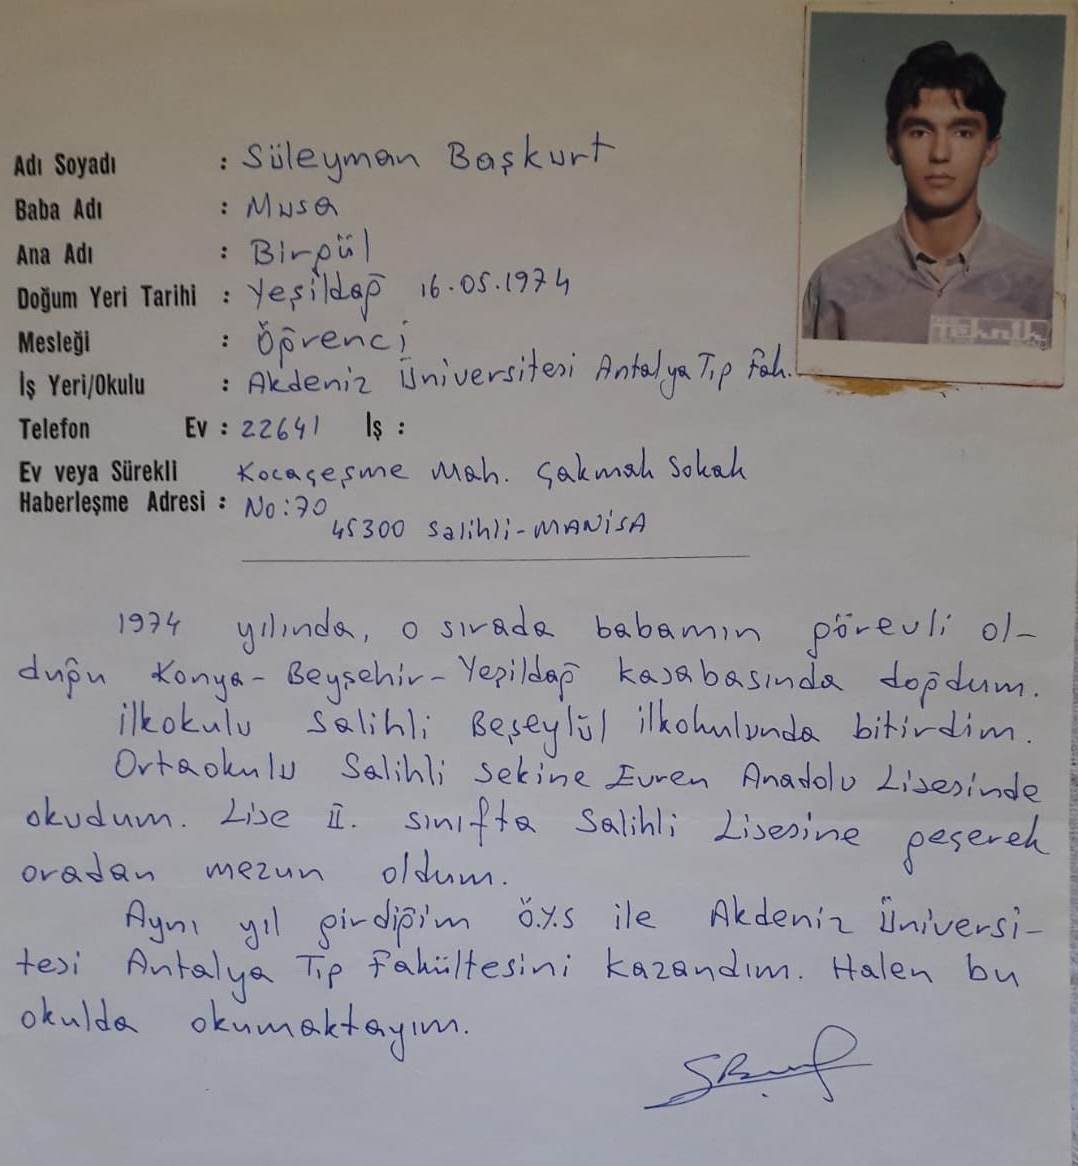 Adı Soyadı : Süleyman Başkurt
Baba Adı : Musa
Ana Adı : Birgül
Doğum Yeri Tarihi : Yeşildağ 16.05.1974
Mesleği : Öğrenci
İş Yeri/Okulu : Akdeniz Üniversitesi Antalya Tıp Fak.
Telefon Ev : 22641 İş :
Ev veya Sürekli Kocaçeşme Mah. Çakmak Sokak
Haberleşme Adresi : No:70
45300 Salihli-MANİSA
1974 yılında, o sırada babamın görevli ol-
duğu Konya-Beyşehir-Yeşildağ kasabasında doğdum.
İlkokulu Salihli Beşeylül ilkokulunda bitirdim.
Ortaokulu Salihli Sekine Evren Anadolu Lisesinde
okudum. Lise II. sınıfta Salihli Lisesine geçerek
oradan mezun oldum.
Aynı yıl girdiğim Ö.Y.S ile Akdeniz Üniversi-
tesi Antalya Tıp Fakültesini kazandım. Halen bu
okulda okumaktayım.